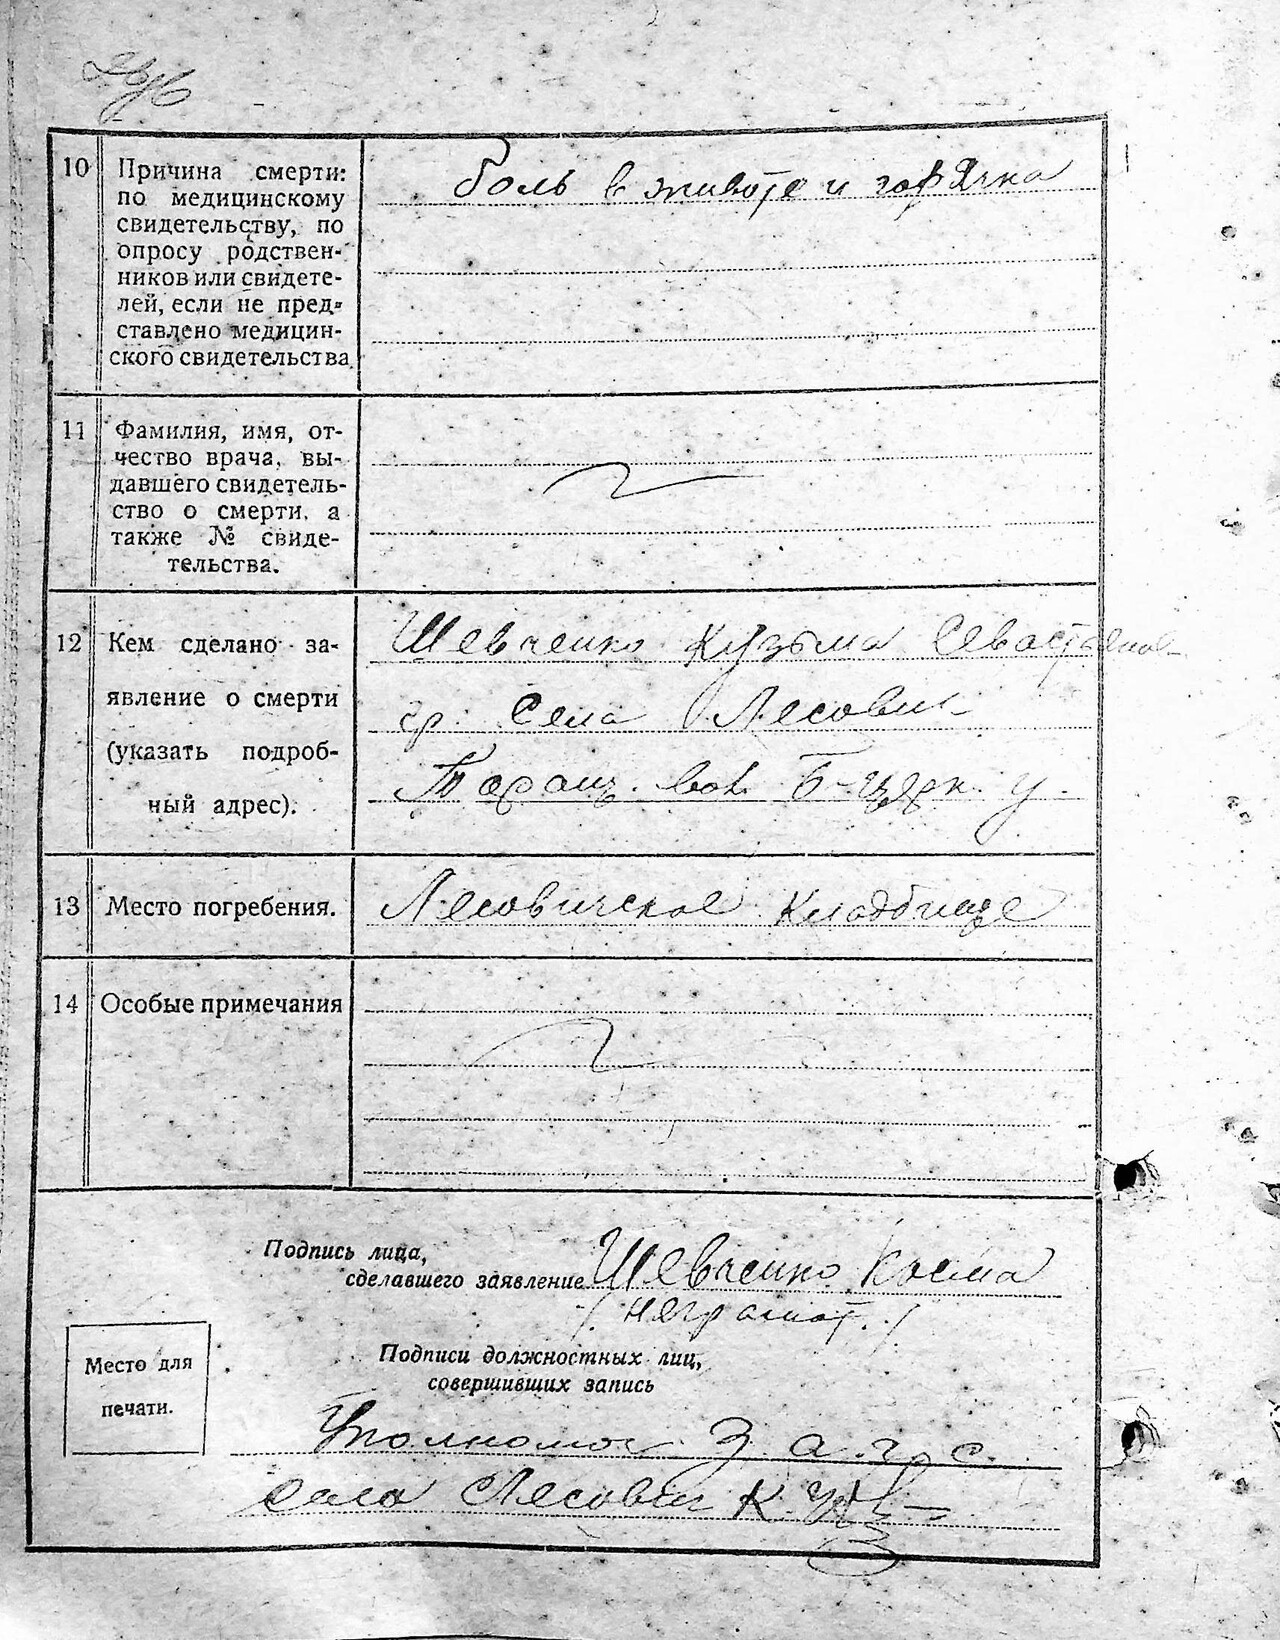 10 Причина смерти:
по медицинскому
свидетельству, по
опросу родствен-
ников или свидете-
лей, если не пред-
ставлено медицин-
ского свидетельства
боль в животе и горячка
11 Фамилия, имя, от-
чество врача, вы-
давшего свидетель-
ство о смерти, а
также № свиде-
тельства.
12 Кем сделано за-
явление о смерти
(указать подроб-
ный адрес).
Шевченко Кузьма Севастьянов
гр. села Лесович
Таращ. вол. Б-церк. у.
13 Место погребения.
Лесовичское кладбище
14 Особые примечания
Подпись лица,
сделавшего заявление Шевченко Косма
/ неграмот. /
Место для
печати.
Подписи должностных лиц,
совершивших запись
Уполномоч З. а. г. с.
села Лесович